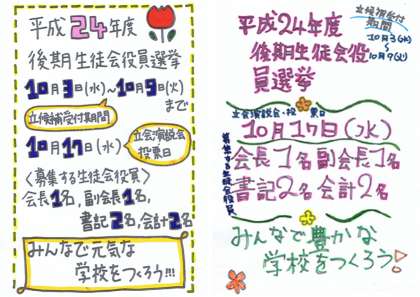 平成24年度
後期生徒会役員選挙
10月3日(水)~10月9日(火)
まで
立候補受付期間
10月17日(水)
立会演説会
投票日
〈募集する生徒会役員〉
会長1名,副会長1名,
書記2名,会計2名
みんなで元気な
学校をつくろう!!!
平成24年度
後期生徒会役
員選挙
立候補受付
期間
10月3(水)
~
10月9(火)
立会演説会・投票日
10月17日(水)
募集する生徒会役員
会長1名副会長1名
書記2名会計2名
みんなで豊かな
学校をつくろう!